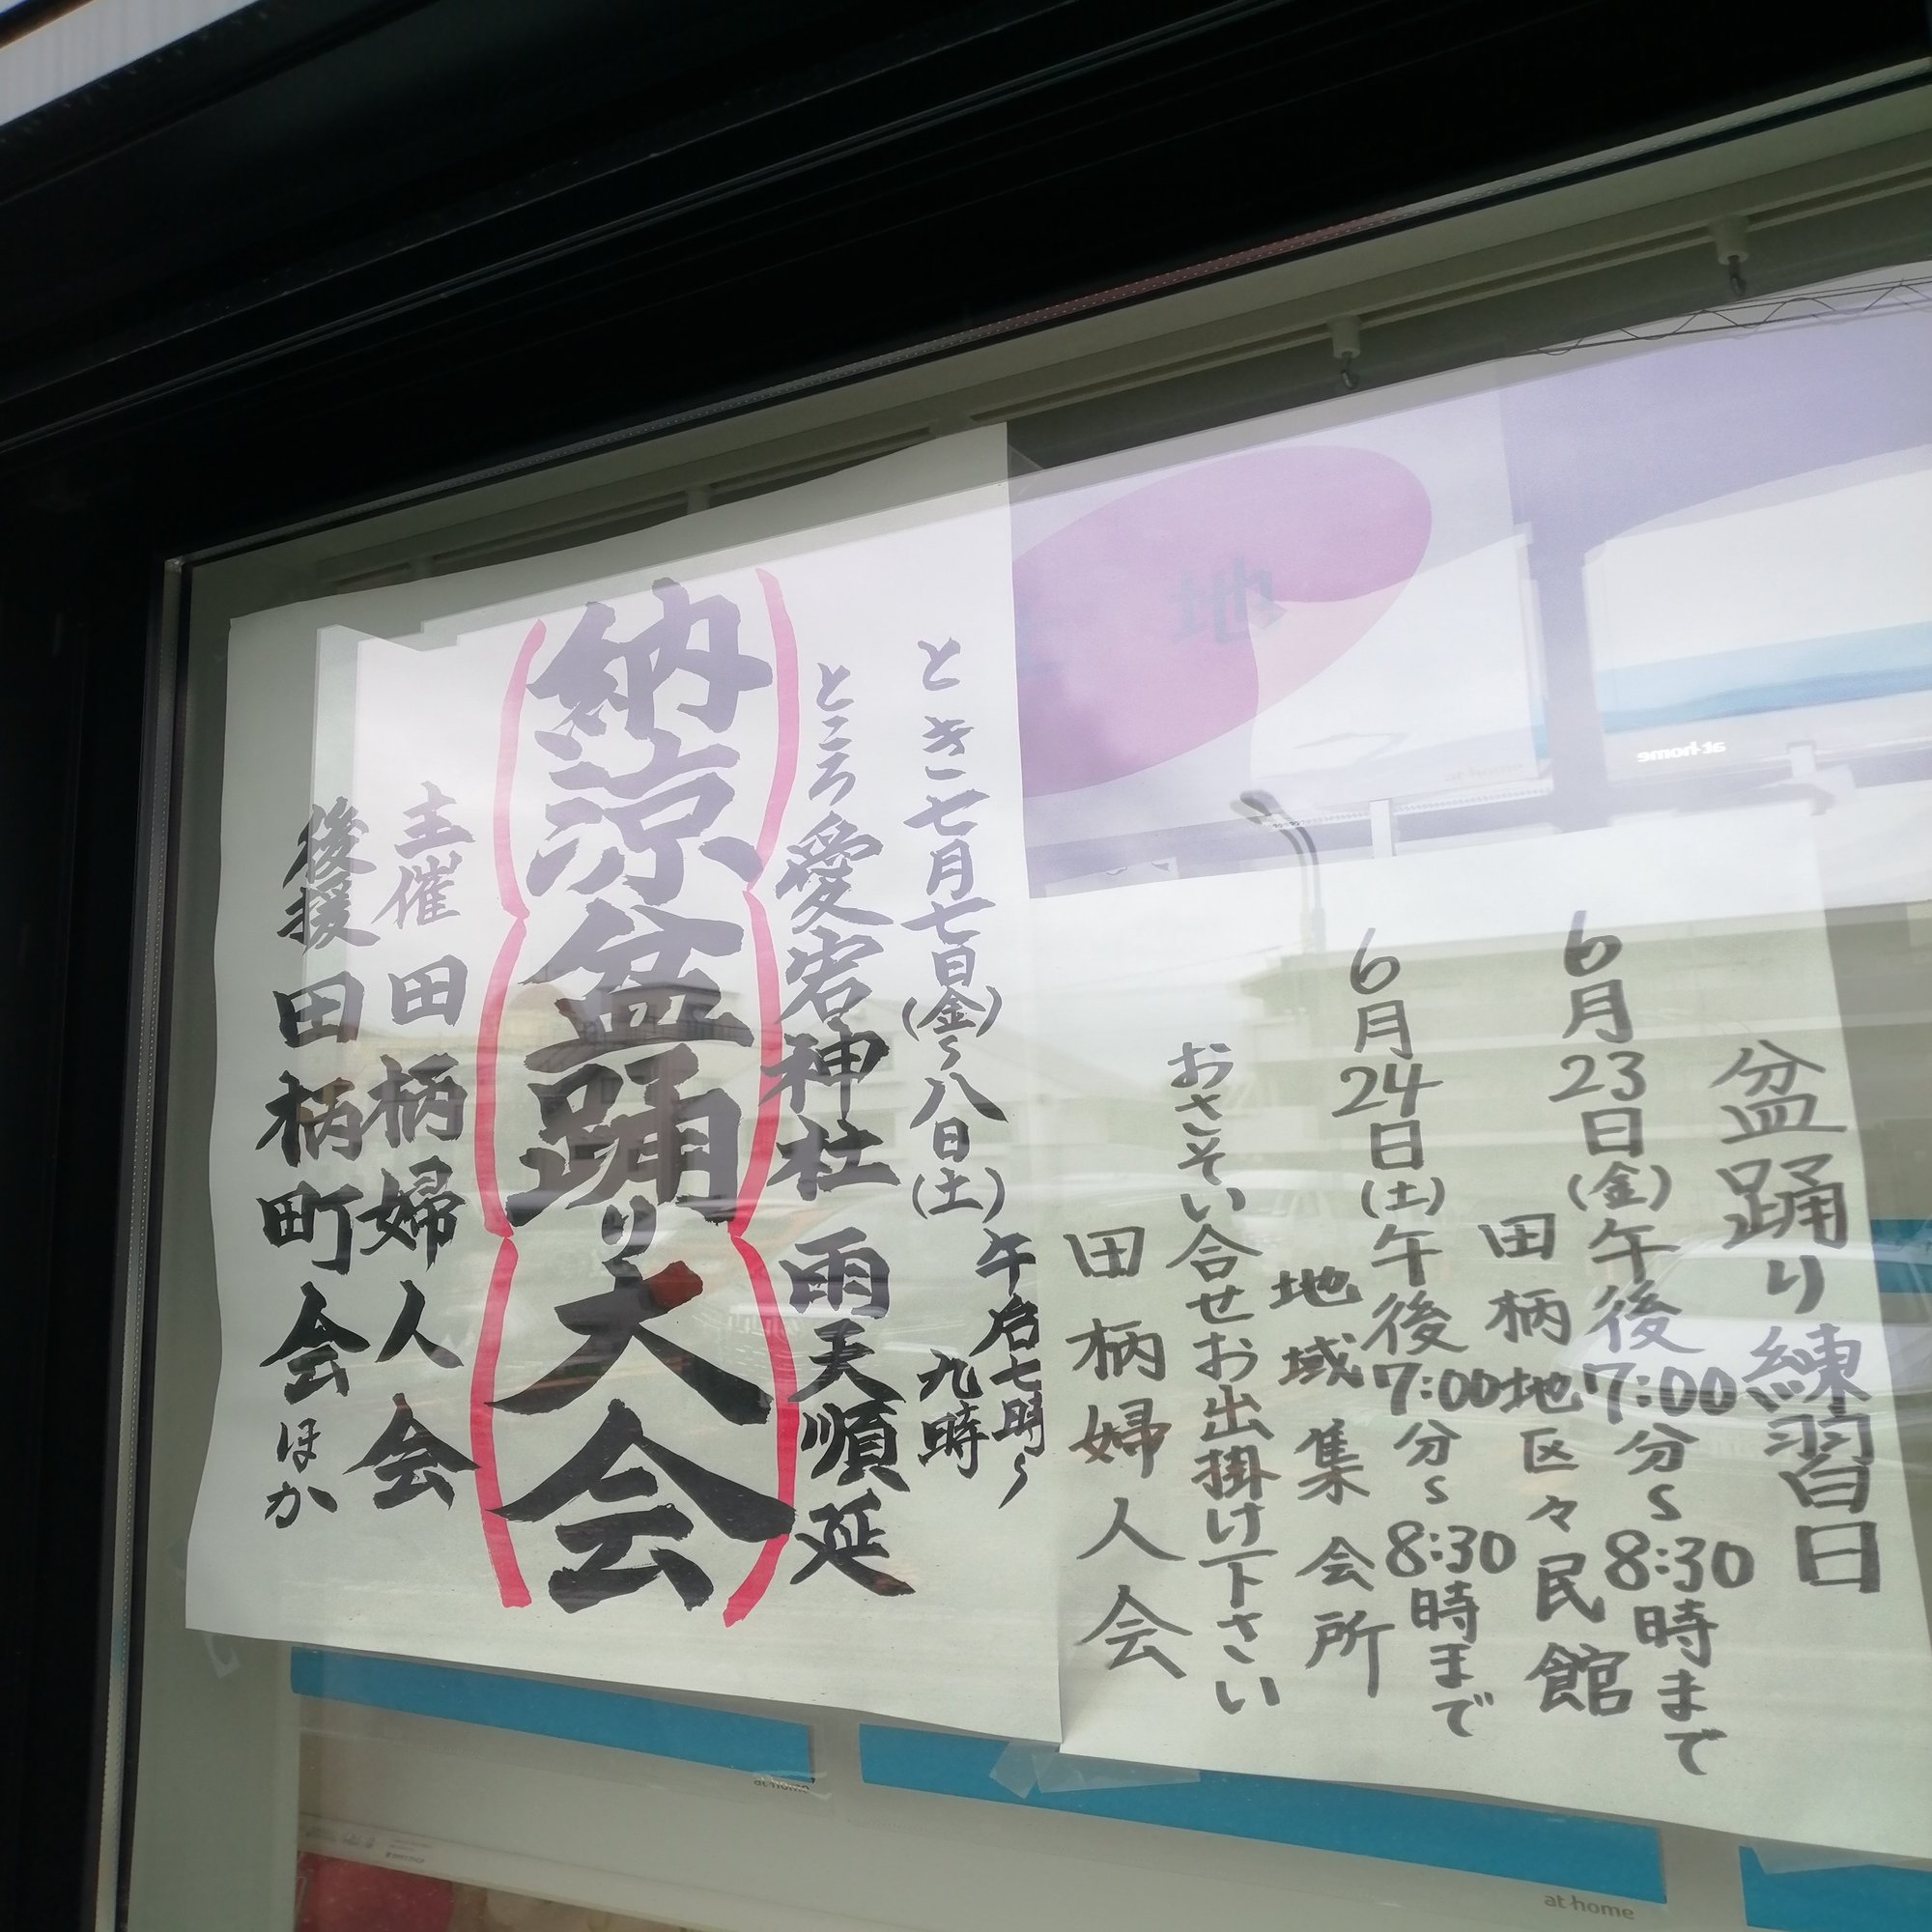 盆踊り練習日
6月23日(金)午後7:00分〜8:30時まで
田柄地区々民館
6月24日(土)午後7:00分〜8:30時まで
地域集会所
おさそい合せお出掛け下さい
田柄婦人会
とき 七月七日(金)〜八日(土)
午后七時〜
九時
ところ 愛宕神社 雨天順延
納涼盆踊り大会
主催 田柄婦人会
後援 田柄町会ほか
at home
at home
at home
地